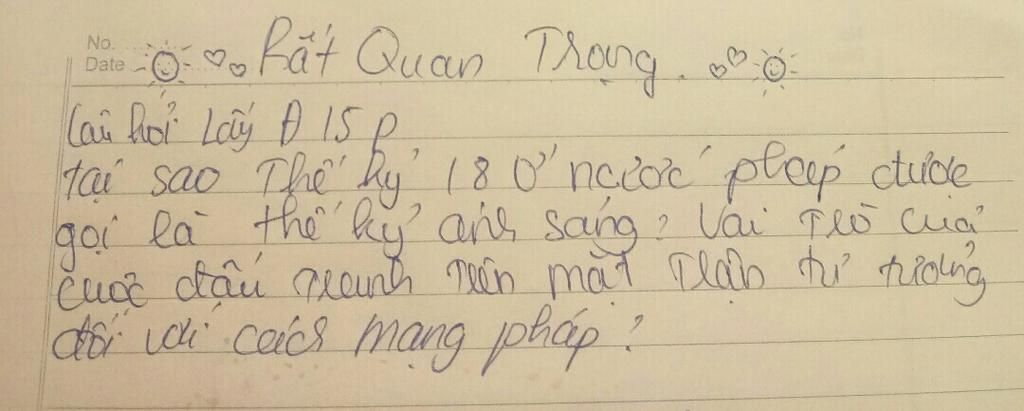 No.
Date
Rất Quan Trọng.
Câu hỏi lấy Đ 15 p
tại sao Thế kỷ 18 ở nước pháp được
gọi là thế kỷ ánh sáng? Vai Trò của
cuộc đấu tranh trên mặt trận tư tưởng
đối với cách mạng pháp?